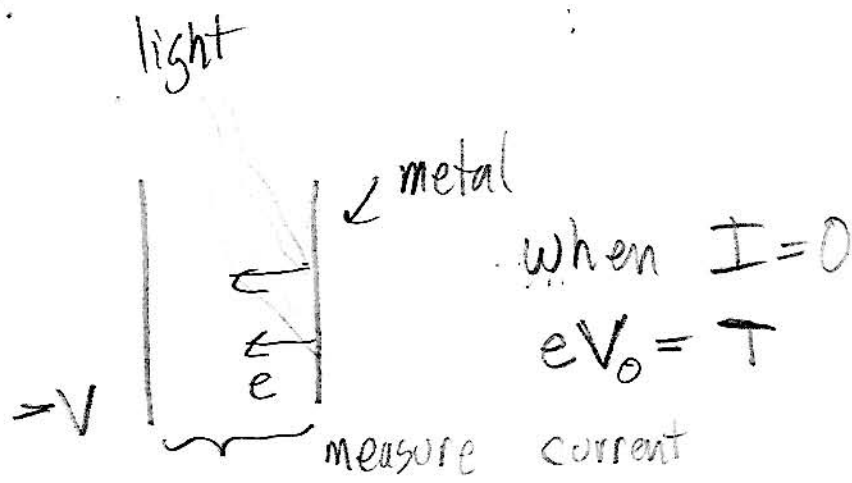 light
metal
when I=0
eV₀ = T
e
-V
measure current